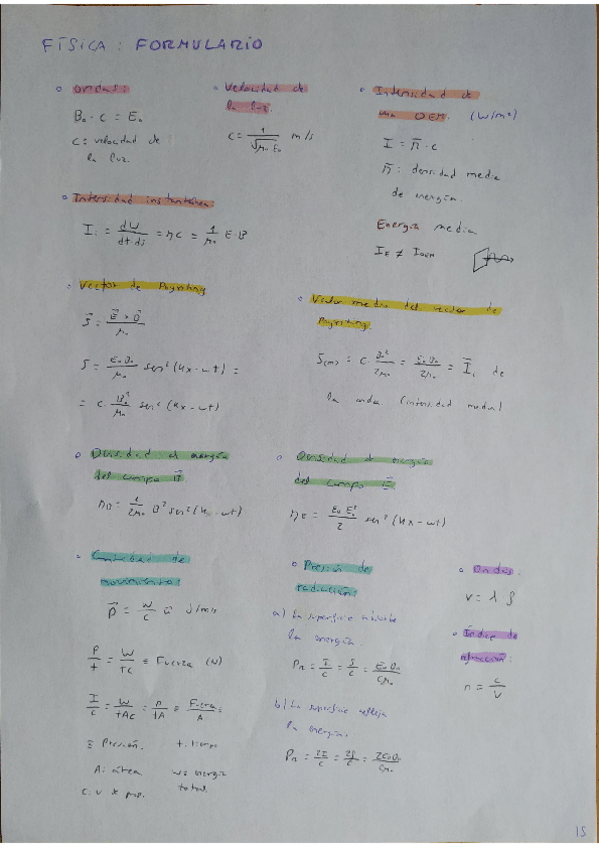 FÍSICA: FORMULARIO
Ondas:
B₀ · c = E₀
c = velocidad de
la luz.
Velocidad de
la luz.
c = 1/√(μ₀ ε₀) m/s
Intensidad de
una OEM. (W/m²)
I = n̄ · c
n̄: densidad media
de energía.
Energía media
I_E ≠ I_OEM
Intensidad instantánea
Iᵢ = dW/(dt·ds) = ηc = 1/μ₀ E·B
Vector de Poynting
S⃗ = (E⃗ × B⃗)/μ₀
S = E₀B₀/μ₀ sen²(kx - wt) =
= c · B₀²/μ₀ sen²(kx - wt)
Vector medio del vector de
Poynting.
S(m) = c · B₀²/2μ₀ = E₀B₀/2μ₀ = I, de
la onda (intensidad media)
Densidad de energía
del campo B⃗
η_B = 1/2μ₀ B² sen²(k - wt)
Densidad de energía
del campo E⃗
η_E = ε₀E₀²/2 sen²(kx - wt)
Cantidad de
movimiento:
p⃗ = W/c
P/t = W/tc ≡ Fuerza (N)
I/c = W/tAc = P/tA ≡ Fuerza/A ≡
≡ Presión. t: tiempo
A: área w ≡ energía
total.
Presión de
radiación:
a) La superficie absorbe
la energía.
Pᵣ = I/c = S/c = E₀B₀/cμ₀
b) La superficie refleja
la energía.
Pᵣ = 2I/c = 2S/c = 2E₀B₀/cμ₀
Ondas:
v = λ f
Índice de
refracción:
n = c/v
15